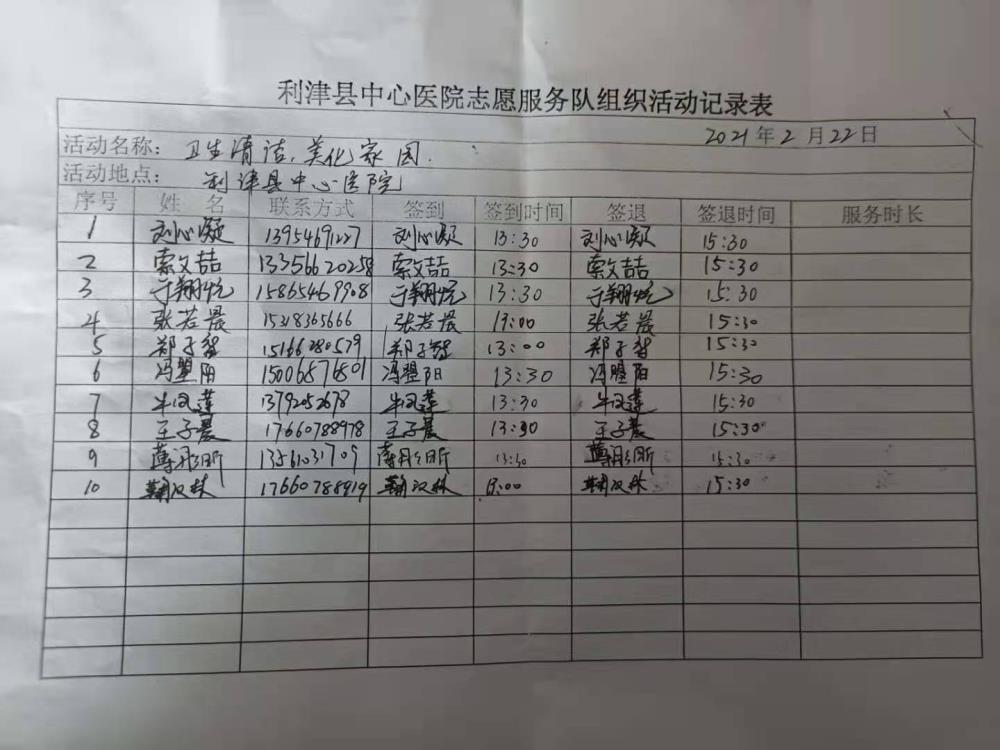 利津县中心医院志愿服务队组织活动记录表
2021年2月22日
活动名称: 卫生清洁、美化家园.
活动地点: 利津县中心医院
序号 姓名 联系方式 签到 签到时间 签退 签退时间 服务时长
1 刘心凝 13954691227 刘心凝 13:30 刘心凝 15:30
2 索文喆 13356620258 索文喆 13:30 索文喆 15:30
3 于翔悦 15865469908 于翔悦 13:30 于翔悦 15:30
4 张若晨 15318365666 张若晨 15:30
5 郑子 15166280579 郑子 13:00 郑子 15:30
6 冯曌阳 15006876801 冯曌阳 13:30 冯曌阳 15:30
7 牛汉莲 13792052678 牛汉莲 13:30 牛汉莲 15:30
8 王子晨 17660788978 王子晨 13:30 王子晨 15:30
9 薄 13561031709 薄 13:30 薄 15:30
10 17660788919 15:30